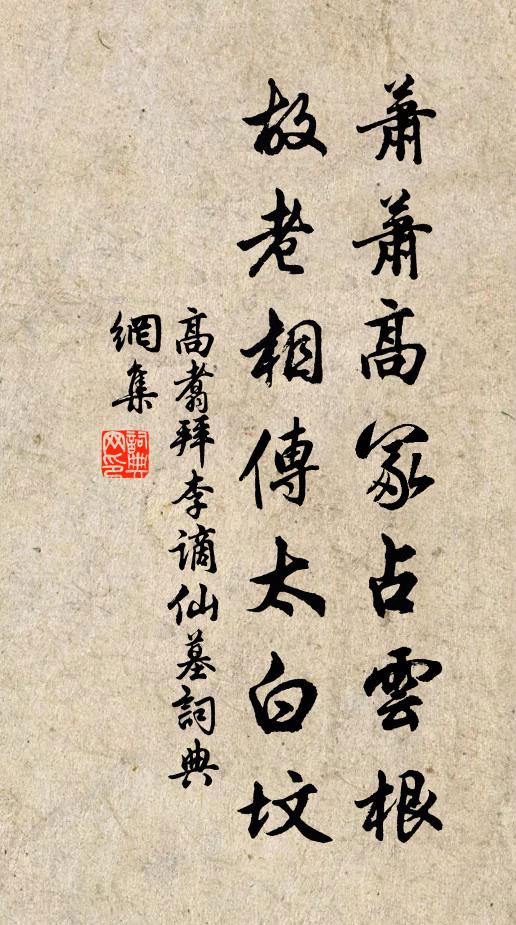 蕭蕭高冢占雲根
故老相傳太白墳
高翥拜李謫仙墓詞典
網集
詞典
网印